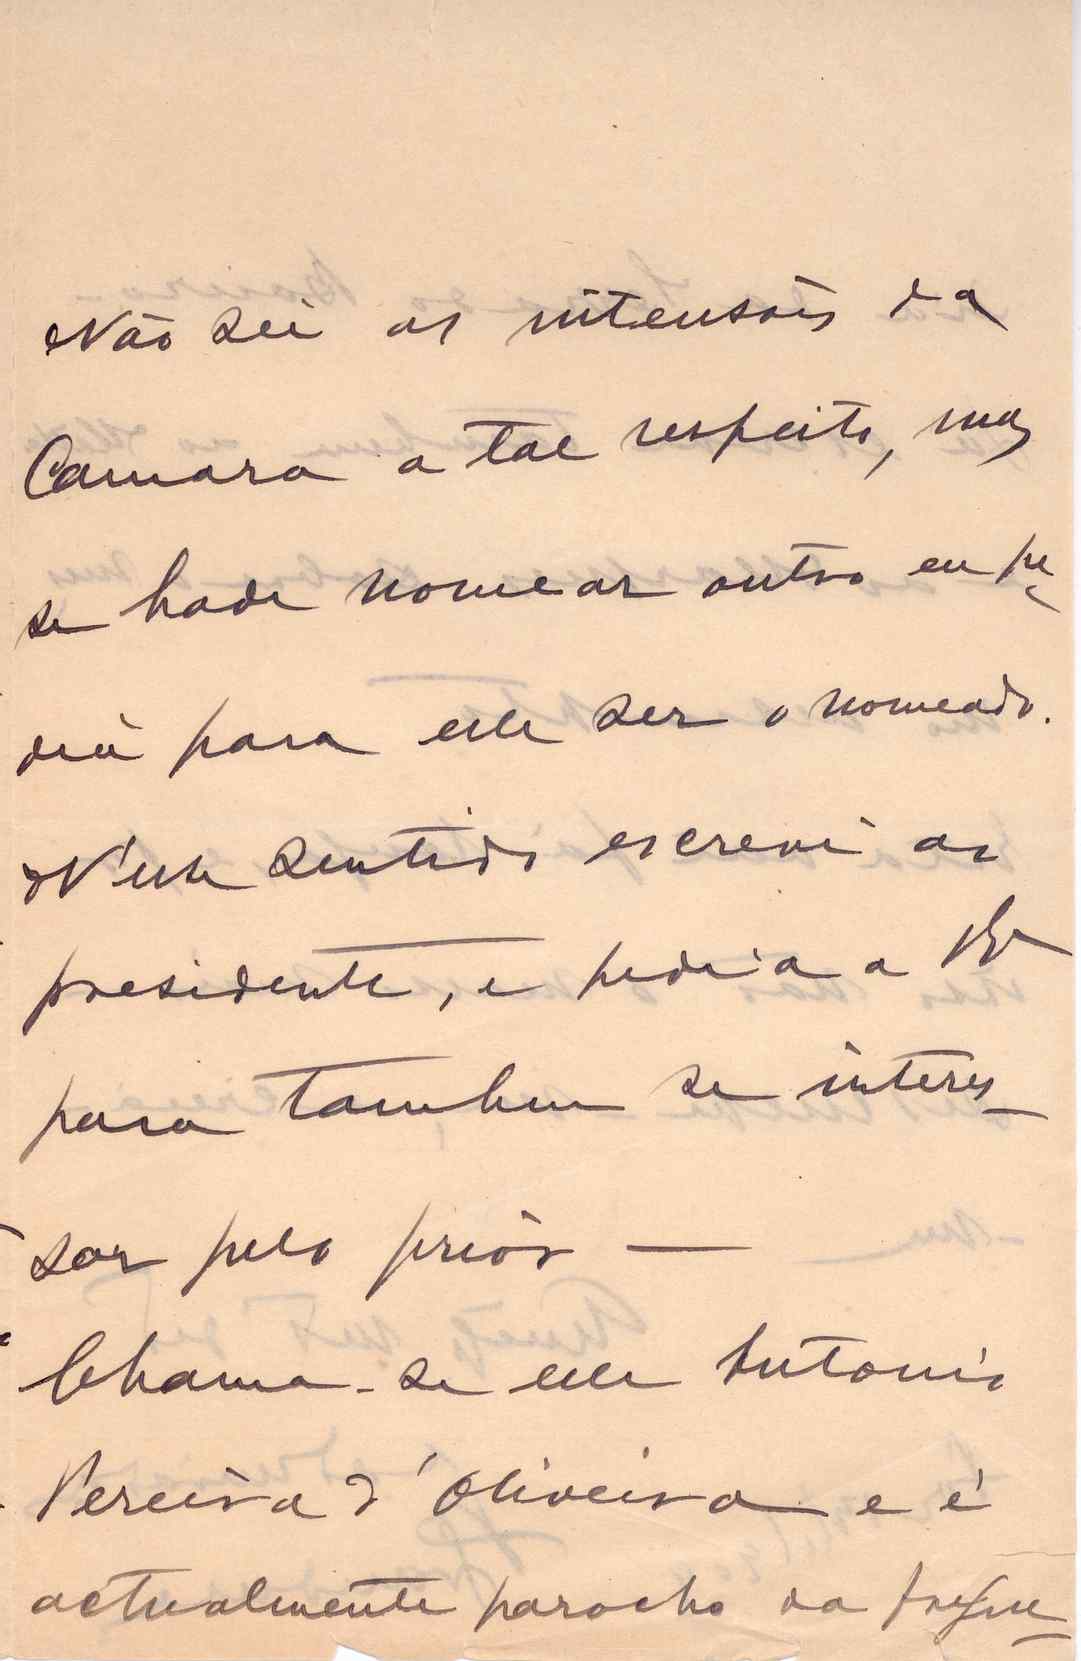 Não sei as intensóis da
Camara a tal respeito, mas
se hade nomear outro eu pe-
dia para elle ser o nomeado.
N'este sentido escrevi ao
presidente, e pedia a VEª
para tambem se interes-
sar pelo priôr —
Chama-se elle Antonio
Pereira d'Oliveira e é
actualmente parocho da fregue-